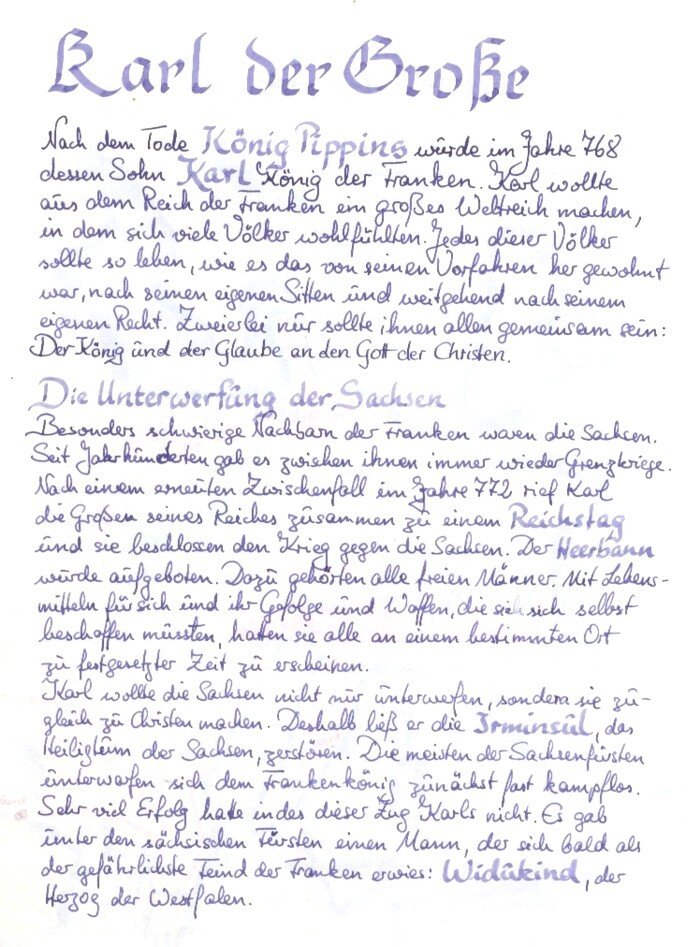 Karl der Große
Nach dem Tode König Pippins wurde im Jahre 768
dessen Sohn Karl König der Franken. Karl wollte
aus dem Reich der Franken ein großes Weltreich machen,
in dem sich viele Völker wohlfühlten. Jedes dieser Völker
sollte so leben, wie es das von seinen Vorfahren her gewohnt
war, nach seinen eigenen Sitten und weitgehend nach seinem
eigenen Recht. Zweierlei nur sollte ihnen allen gemeinsam sein:
Der König und der Glaube an den Gott der Christen.
Die Unterwerfung der Sachsen
Besonders schwierige Nachbarn der Franken waren die Sachsen.
Seit Jahrhunderten gab es zwischen ihnen immer wieder Grenzkriege.
Nach einem erneuten Zwischenfall im Jahre 772 rief Karl
die Großen seines Reiches zusammen zu einem Reichstag
und sie beschlossen den Krieg gegen die Sachsen. Der Heerbann
wurde aufgeboten. Dazu gehörten alle freien Männer. Mit Lebens-
mitteln für sich und ihr Gefolge und Waffen, die sich sich selbst
beschaffen müssten, hatten sie alle an einem bestimmten Ort
zu festgesetzter Zeit zu erscheinen.
Karl wollte die Sachsen nicht nur unterwefen, sondern sie zu-
gleich zu Christen machen. Deshalb ließ er die Irminsul, das
Heiligtum der Sachsen, zerstören. Die meisten der Sachsenfürsten
unterwarfen sich dem Frankenkönig zunächst fast kampflos.
Sehr viel Erfolg hatte indes dieser Zug Karls nicht. Es gab
unter den sächsischen Fürsten einen Mann, der sich bald als
der gefährlichste Feind der Franken erwies: Widukind, der
Herzog der Westfalen.